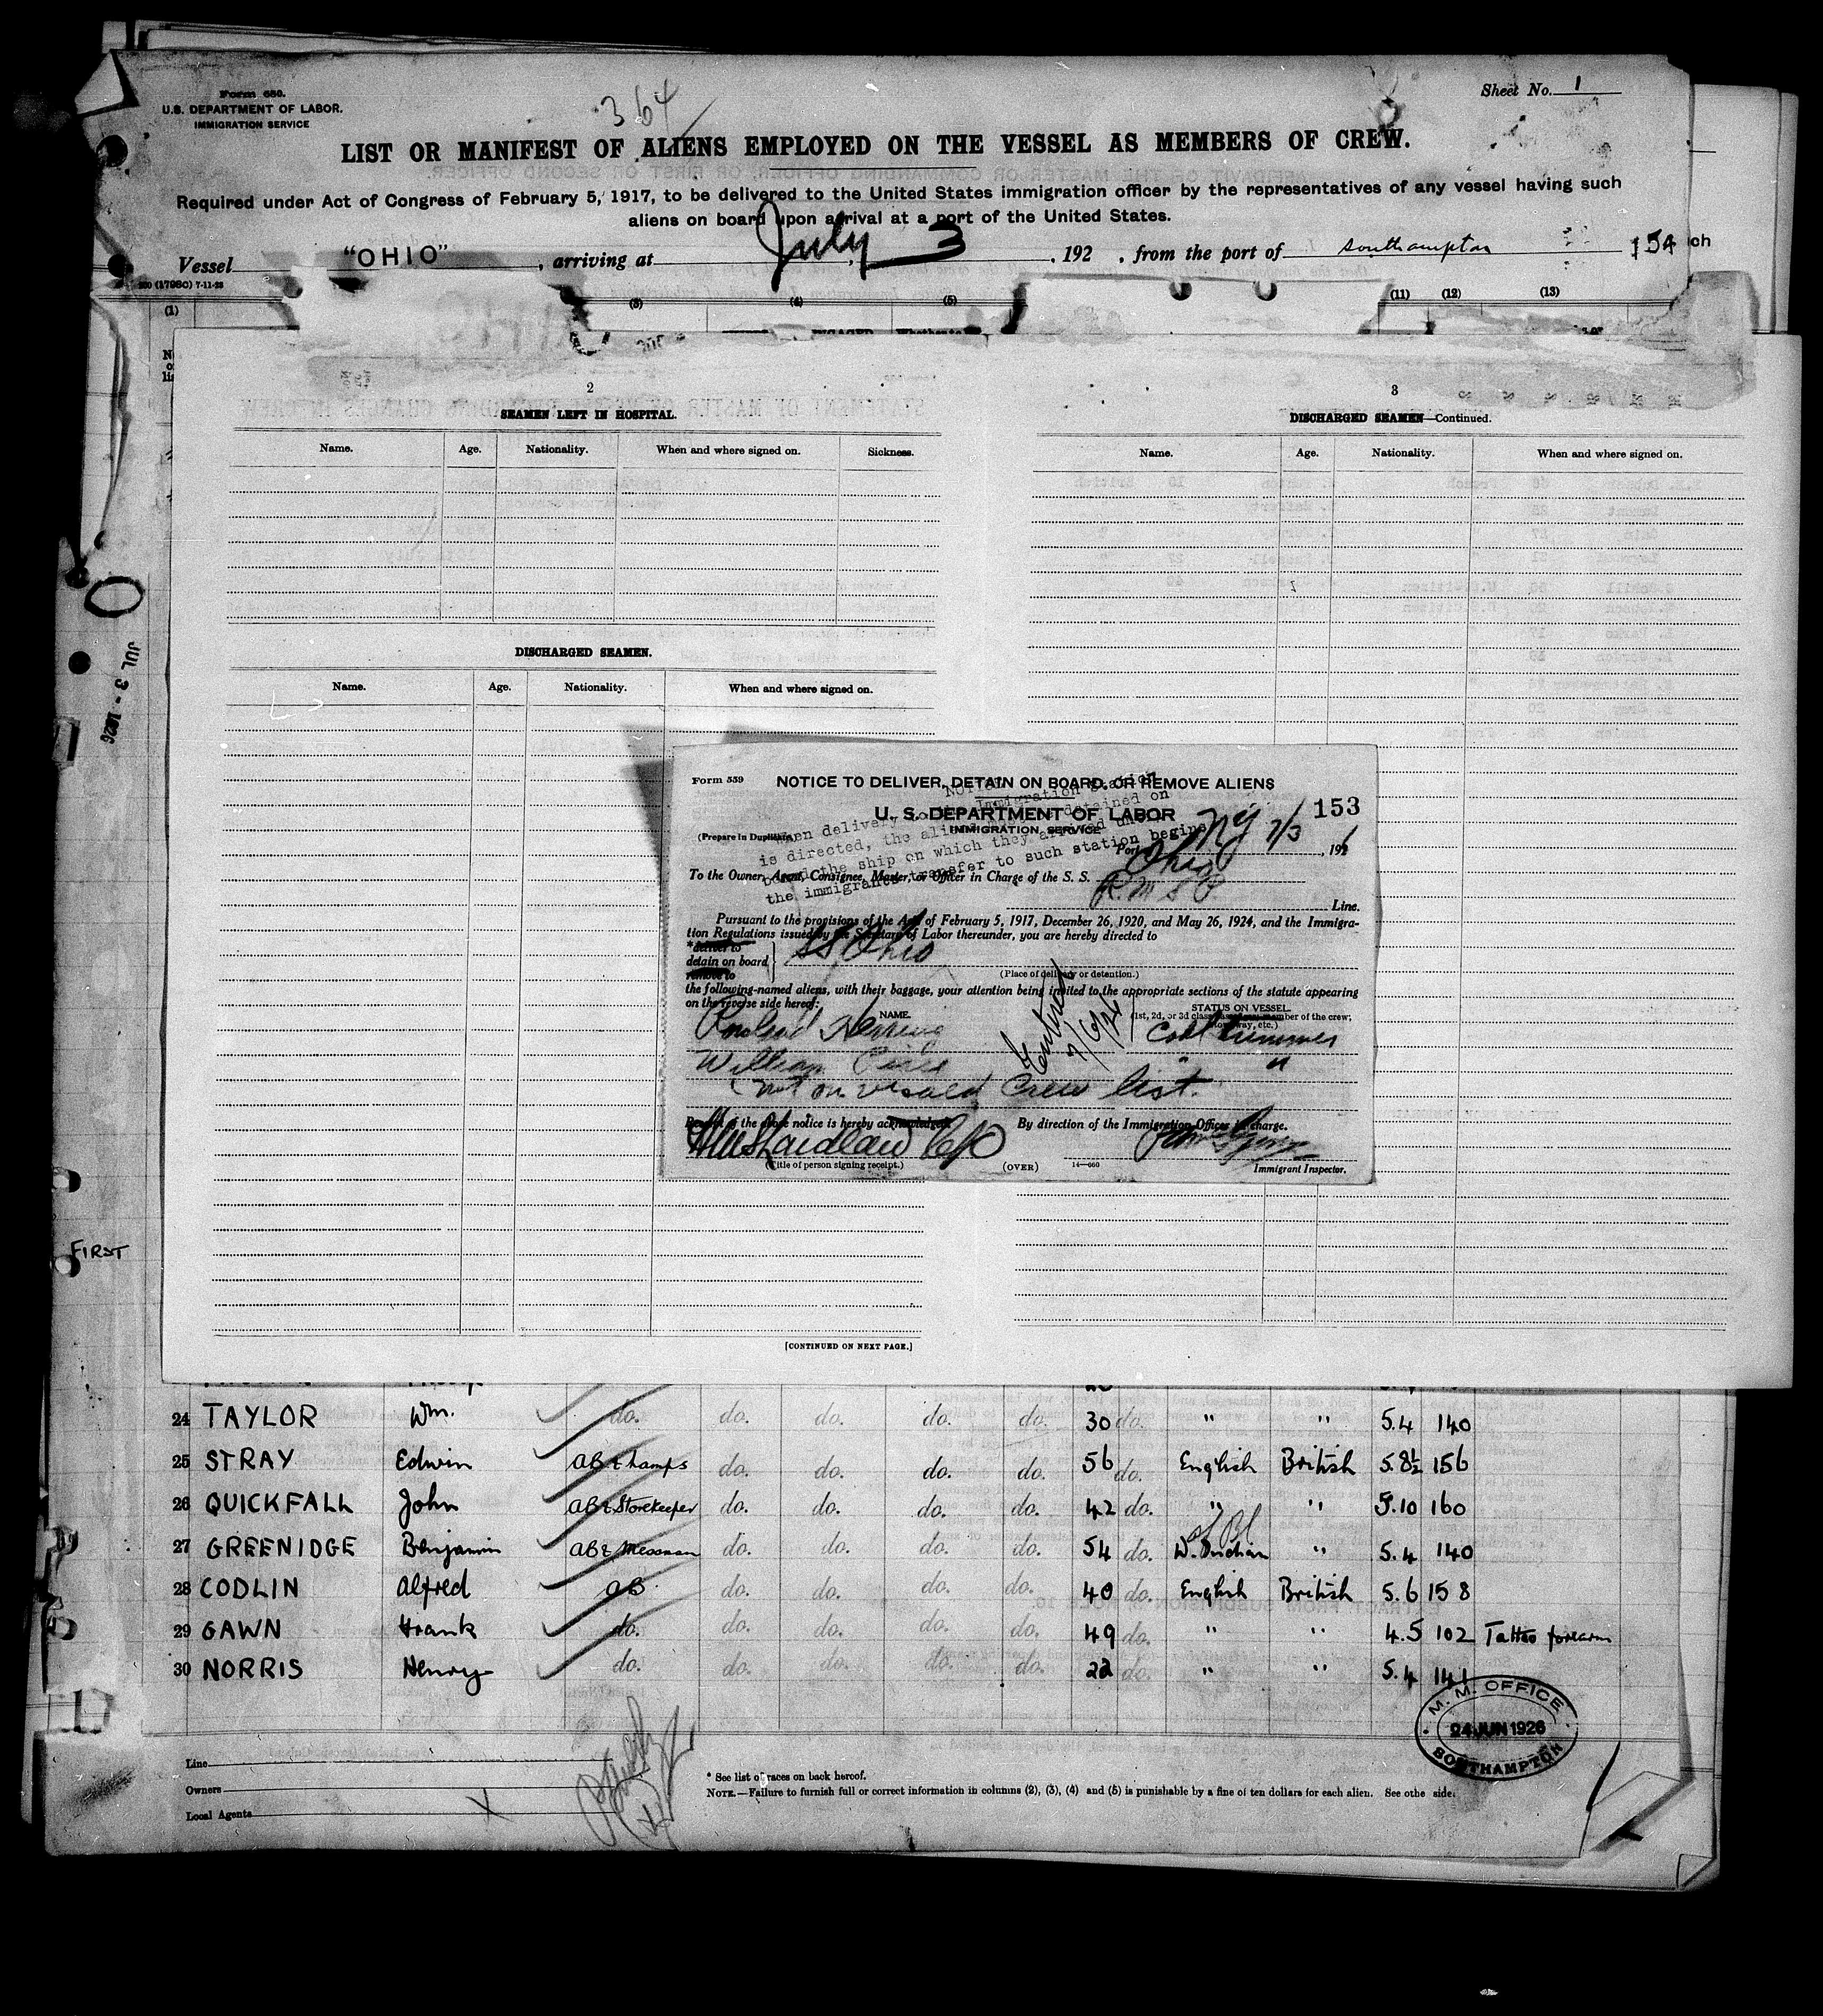 Form 680.
U.S. DEPARTMENT OF LABOR.
IMMIGRATION SERVICE
364
Sheet No. 1
LIST OR MANIFEST OF ALIENS EMPLOYED ON THE VESSEL AS MEMBERS OF CREW.
Required under Act of Congress of February 5, 1917, to be delivered to the United States immigration officer by the representatives of any vessel having such
aliens on board upon arrival at a port of the United States.
Vessel "OHIO", arriving at July 3, 192 , from the port of Southampton 154
(17980) 7-11-23
(1) (3) (4) (5) (11) (12) (13)
2
SEAMEN LEFT IN HOSPITAL.
Name. Age. Nationality. When and where signed on. Sickness.
DISCHARGED SEAMEN.
Name. Age. Nationality. When and where signed on.
[CONTINUED ON NEXT PAGE.]
3
DISCHARGED SEAMEN—Continued.
Name. Age. Nationality. When and where signed on.
JUL 3 - 1926
FIRST
Form 559
NOTICE TO DELIVER, DETAIN ON BOARD, OR REMOVE ALIENS
U. S. DEPARTMENT OF LABOR
153
(Prepare in Duplicate)
IMMIGRATION SERVICE
Port NY 7/3, 1926
To the Owner, Agent, Consignee, Master, or Officer in Charge of the S. S. Ohio
R.M.S.P. Line.
Pursuant to the provisions of the Act of February 5, 1917, December 26, 1920, and May 26, 1924, and the Immigra-
tion Regulations issued by the Secretary of Labor thereunder, you are hereby directed to
*deliver to
detain on board } SS Ohio
remove to
(Place of delivery or detention.)
the following-named aliens, with their baggage, your attention being invited to the appropriate sections of the statute appearing
on the reverse side hereof:
NAME.
STATUS ON VESSEL.
(1st, 2d, or 3d class passenger; member of the crew;
stowaway, etc.)
Roland Herring Coal trimmer
William " "
(not on visaed Crew list.
7/6/26
Receipt of the above notice is hereby acknowledged
By direction of the Immigration Officer in charge.
(Title of person signing receipt.)
(OVER)
14—660
Immigrant Inspector.
NOTICE
When delivery to Immigration Station
is directed, the aliens must be detained on
board the ship on which they arrived until
the immigrants transfer to such station begins
24 TAYLOR Wm. do. do. do. do. do. 30 do. " " 5.4 140
25 STRAY Edwin AB & Lamps do. do. do. do. 56 do. English British 5.8½ 156
26 QUICKFALL John AB & Storekeeper do. do. do. do. 42 do. " " 5.10 160
27 GREENIDGE Benjamin AB & Messman do. do. do. do. 54 do. W. Indian " 5.4 140
28 CODLIN Alfred AB. do. do. do. do. 40 do. English British 5.6 158
29 GAWN Frank do. do. do. do. do. 49 do. " " 4.5 102 Tattoo forearm
30 NORRIS Henry do. do. do. do. do. 22 do. " " 5.4 141
M. M. OFFICE
24 JUN 1926
SOUTHAMPTON
Line
Owners
Local Agents
* See list of races on back hereof.
NOTE.—Failure to furnish full or correct information in columns (2), (3), (4) and (5) is punishable by a fine of ten dollars for each alien. See othe side.